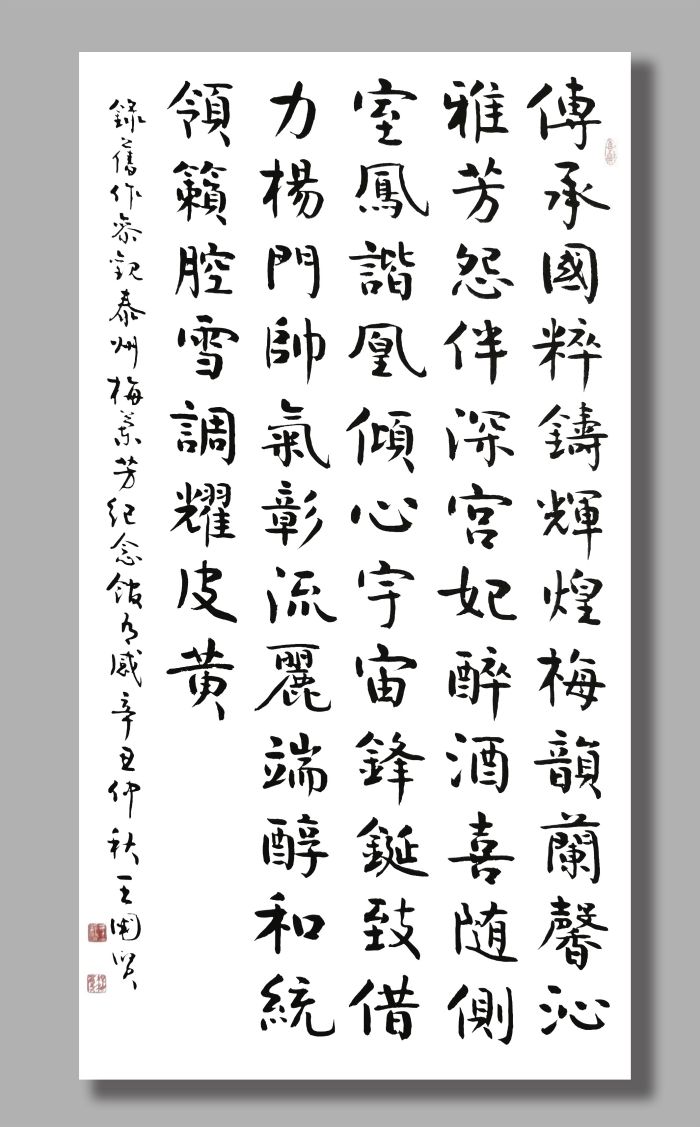 傳承國粹鑄輝煌梅韻蘭馨沁
雅芳怨伴深宮妃醉酒喜随側
室鳳諧凰傾心宇宙鋒鋋致借
力楊門帥氣彰流麗端醇和統
領籟腔雪調耀皮黄
錄舊作参观泰州梅兰芳纪念馆有感辛丑仲秋王国贤